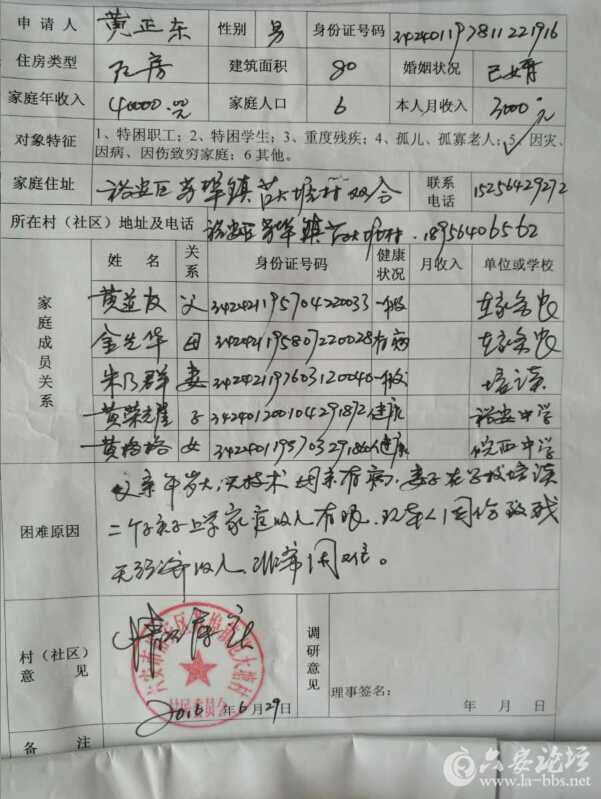 申请人 黄正东 性别 男 身份证号码 342401197811221916
住房类型 瓦房 建筑面积 80 婚姻状况 已婚
家庭年收入 40000.元 家庭人口 6 本人月收入 3000元
对象特征 1、特困职工；2、特困学生；3、重度残疾；4、孤儿、孤寡老人；5、因灾、
因病、因伤致穷家庭；6 其他。
家庭住址 裕安区 镇 村 联系电话 15256429272
所在村（社区）地址及电话 裕安区 镇 村. 18956406562
家庭成员关系
姓名 关系 身份证号码 健康状况 月收入 单位或学校
黄益友 父 342421195704220033 一般 在家务农
金先华 母 342421195807220028 有病 在家务农
朱乃群 妻 342421197603120040 一般 培读
黄荣耀 子 342401200104291872 健康 裕安中学
黄格格 女 健康 皖西中学
困难原因 父亲年岁大，没技术 母亲有病，妻子在学校培读
二个孩子上学家庭收入有限，现本人因伤致残
无经济收入，非常困难。
村（社区）意见 情况属实
居民委员会
2016 年 6 月 29 日
调研意见
理事签名： 年 月 日
备注
六安论坛
www.la-bbs.net